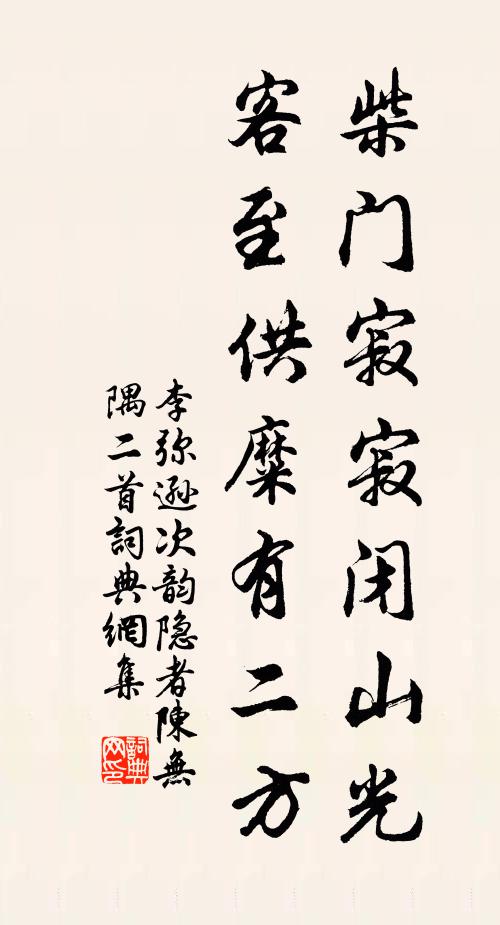 柴门寂寂闭山光
客至供糜有二方
李弥逊次韵隐者陳無
隅二首詞典網集
詞典
网印